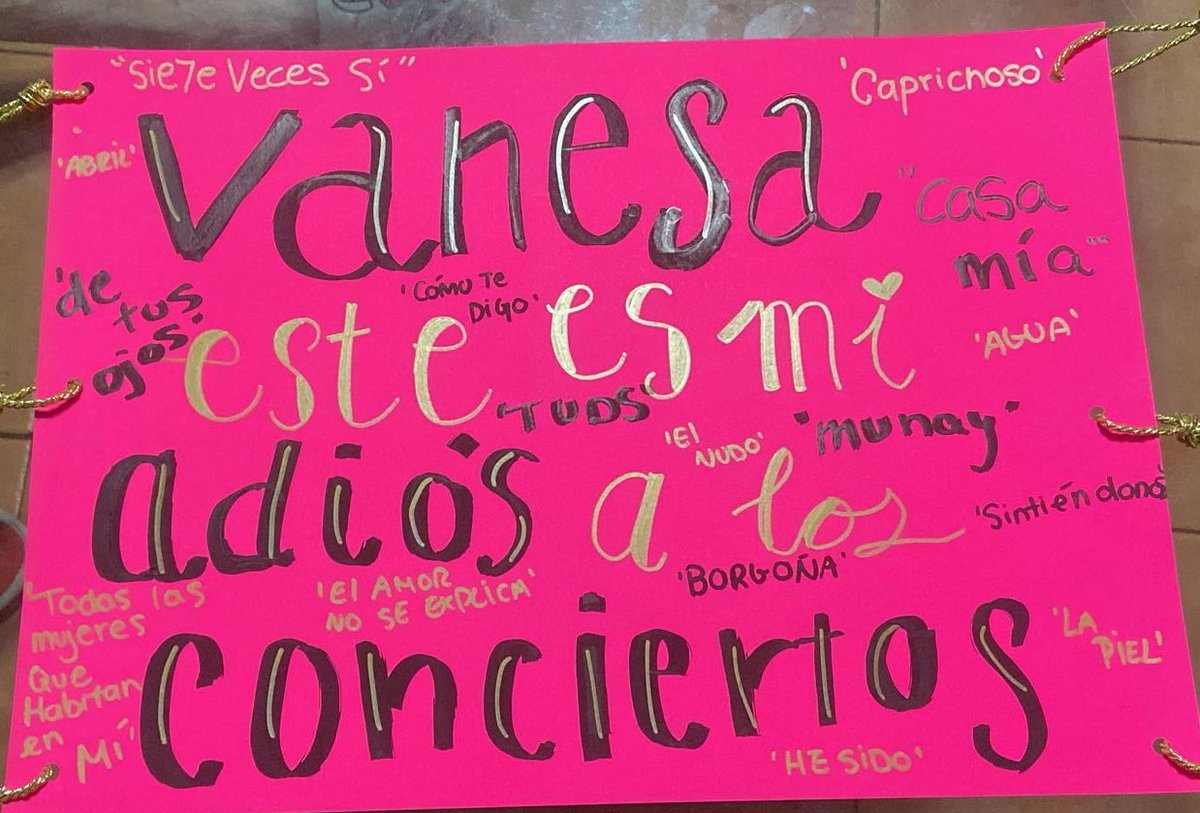 "Sie7e Veces Sí"
'Caprichoso'
Vanesa
'ABRIL'
"Casa
mía"
'de
tus
ojos'
'CÓMO TE
DIGO'
este es mi
'AGUA'
'TUDS'
'El
NUDO'
'munay'
adiós a los
'Sintiéndonos'
'BORGOÑA'
'El AMOR
NO SE EXPLICA'
'Todas las
mujeres
Que
Habitan
en
Mí'
conciertos
'LA
PIEL'
'HE SIDO'